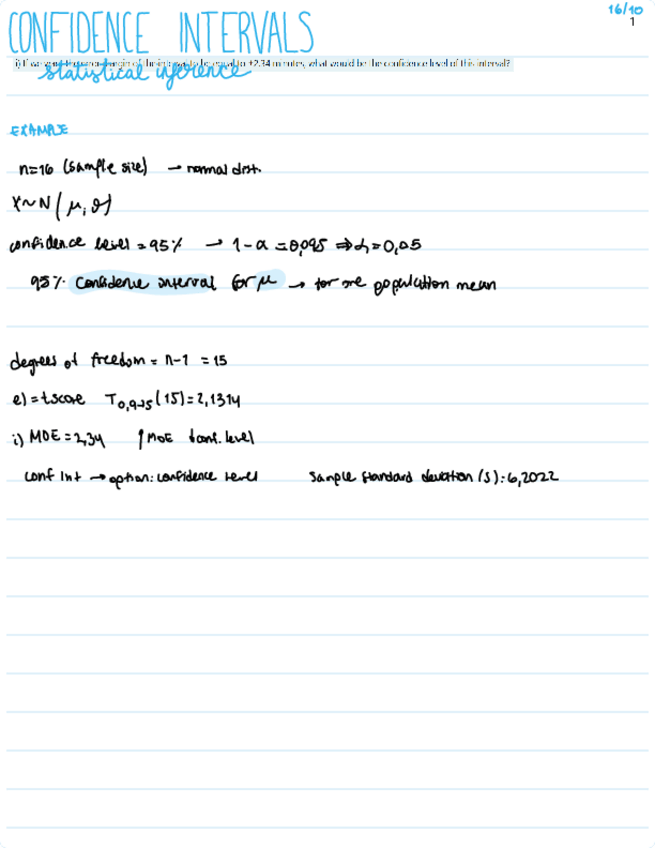 16/10
1
CONFIDENCE INTERVALS
i) If we want the error margin of the interval to be equal to ±2.34 minutes, what would be the confidence level of this interval?
statistical inference
EXAMPLE
n=16 (sample size) → normal dist.
X~N(μ,σ)
confidence level = 95% → 1-α = 0,095 ⇒ α = 0,05
95% confidence interval for μ → for the population mean
degrees of freedom = n-1 = 15
e) = t score T0,975 (15) = 2,1314
i) MOE = 2,34 ↑ MOE conf. level
conf int → option: confidence level sample standard deviation (s): 6,2022